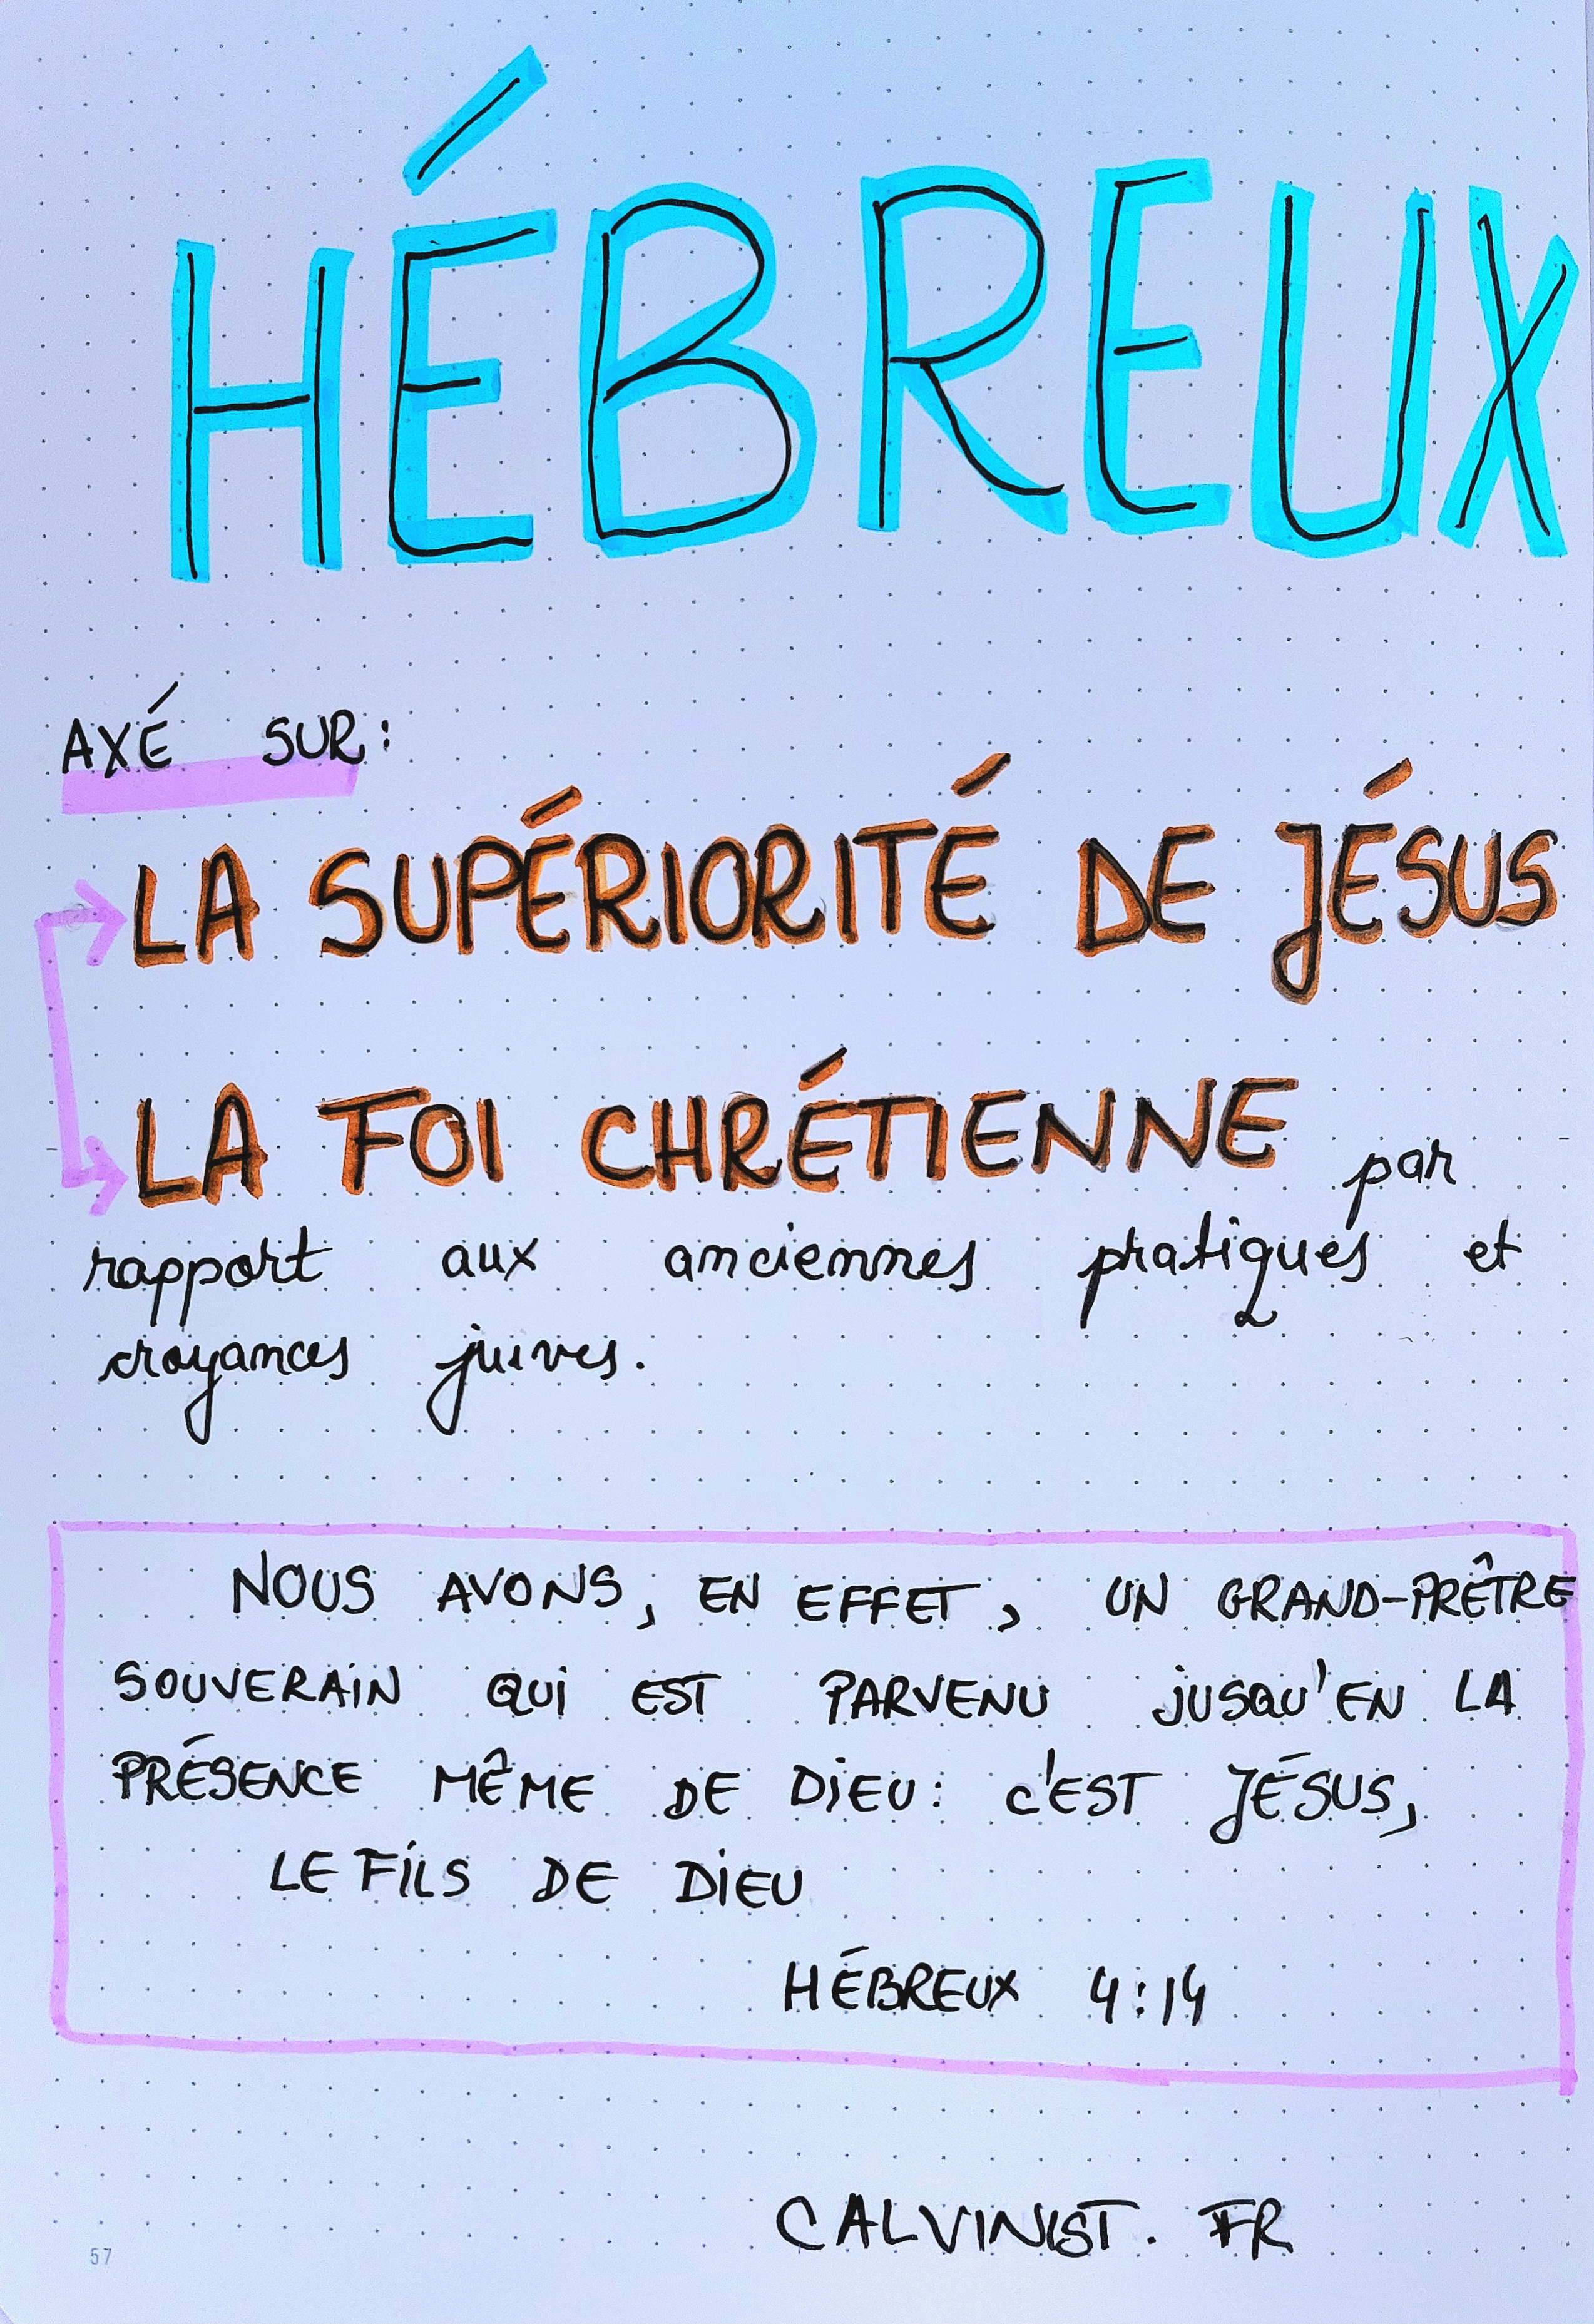 HÉBREUX
AXÉ SUR:
LA SUPÉRIORITÉ DE JÉSUS
LA FOI CHRÉTIENNE par
rapport aux anciennes pratiques et
croyances juives.
NOUS AVONS, EN EFFET, UN GRAND-PRÊTRE
SOUVERAIN QUI EST PARVENU JUSQU'EN LA
PRÉSENCE MÊME DE DIEU: C'EST JÉSUS,
LE FILS DE DIEU
HÉBREUX 4:14
CALVINIST. FR
57